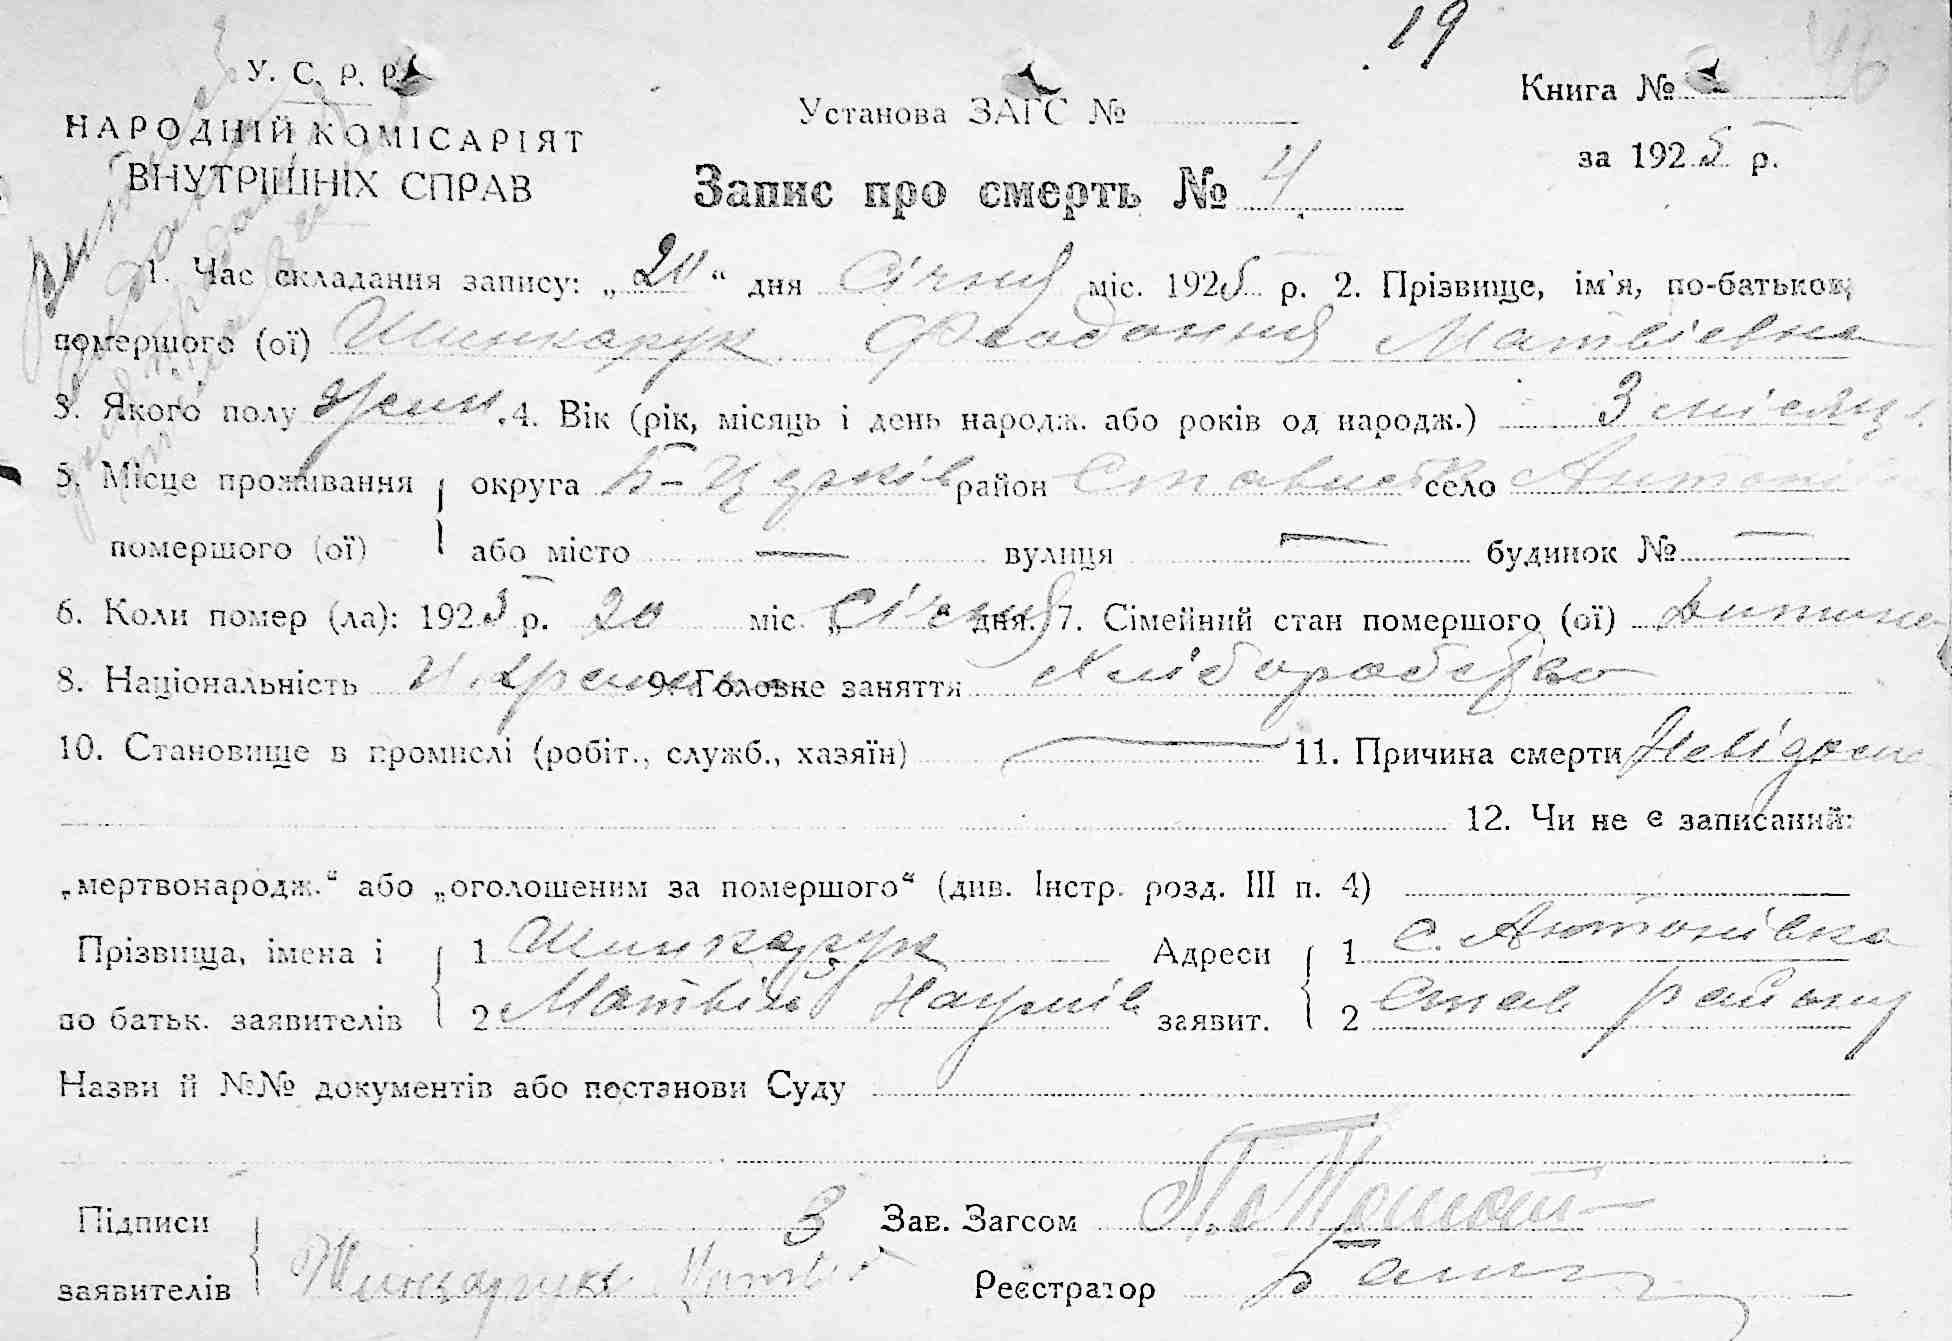 19
У. С. Р. Р.
Установа ЗАГС №
Книга № 46
НАРОДНІЙ КОМІСАРІЯТ
ВНУТРІШНІХ СПРАВ
за 1925 р.
Запис про смерть № 4
1. Час складання запису: „20“ дня Січня міс. 1925 р. 2. Прізвище, ім'я, по-батькові
помершого (ої) Шинкарук Феодонія Матвієвна
3. Якого полу жен. 4. Вік (рік, місяць і день народж. або років од народж.) 3 місяці.
5. Місце проживання округа Б-Церків район Стависьк село Антонів
помершого (ої) або місто — вулиця — будинок № —
6. Коли помер (ла): 1925 р. 20 міс. „Січня“ дня. 7. Сімейний стан помершого (ої) Дитина
8. Національність 9. Головне заняття Хліборобство
10. Становище в промислі (робіт., служб., хазяїн) — 11. Причина смерти Невідома
12. Чи не є записаний:
„мертвонародж.“ або „оголошеним за помершого“ (див. Інстр. розд. III п. 4)
Прізвища, імена і 1 Шинкарук Адреси 1 с. Антонівка
по батьк. заявителів 2 Матвій Наумів заявит. 2 Став району
Назви й №№ документів або постанови Суду
Підписи З Зав. Загсом
заявителів Реєстратор